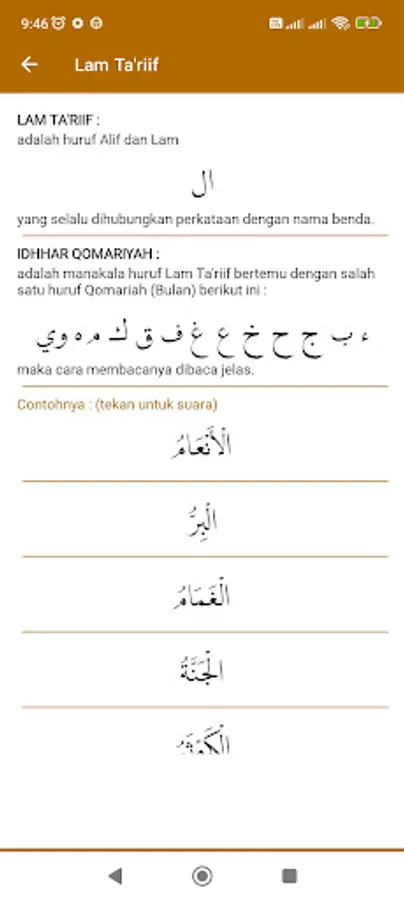 9:46
Lam Ta'riif
LAM TA'RIIF :
adalah huruf Alif dan Lam
ال
yang selalu dihubungkan perkataan dengan nama benda.
IDHHAR QOMARIYAH :
adalah manakala huruf Lam Ta'riif bertemu dengan salah
satu huruf Qomariah (Bulan) berikut ini :
ء ب ج ح خ ع غ ف ق ك م ه و ي
maka cara membacanya dibaca jelas.
Contohnya : (tekan untuk suara)
الْأَنْعَامُ
الْبِرُّ
الْغَمَامُ
الْجَنَّةُ